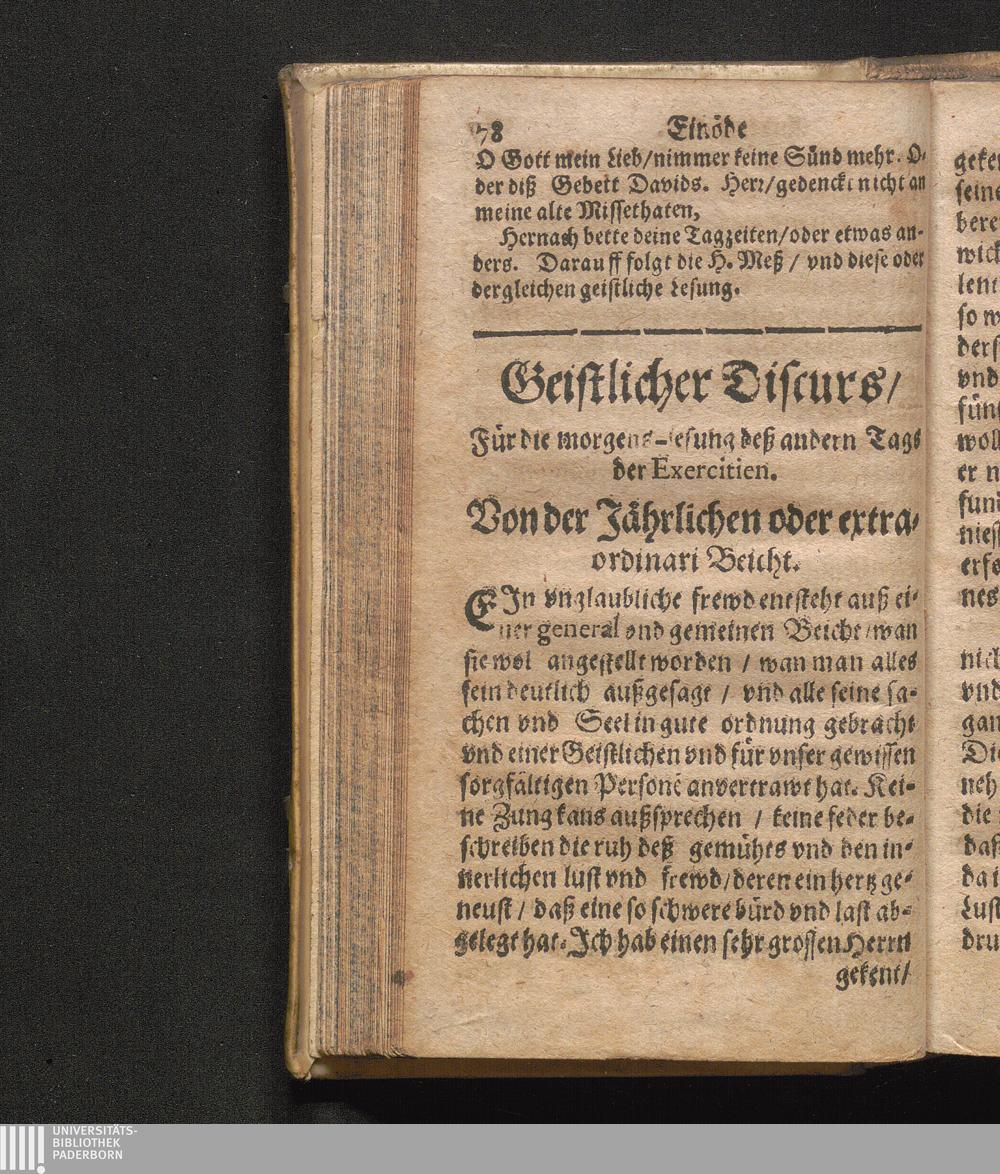 78 Einöde
O Gott mein Lieb/nimmer keine Sünd mehr. O-
der diß Gebett Davids. Herr/gedenckt nicht an
meine alte Missethaten,
Hernach bette deine Tagzeiten/oder etwas an-
ders. Darauff folgt die H. Meß / vnd diese oder
dergleichen geistliche Lesung.
Geistlicher Discurs/
Für die morgens-lesung deß andern Tags
der Exercitien.
Von der Jährlichen oder extra-
ordinari Beicht.
EIn vnglaubliche frewd entsteht auß ei-
ner general vnd gemeinen Beicht/wan
sie wol angestellt worden / wan man alles
fein deutlich außgesagt / vnd alle seine sa-
chen vnd Seel in gute ordnung gebracht
vnd einer Geistlichen vnd für vnser gewissen
sorgfältigen Personē anvertrawt hat. Kei-
ne Zung kans außsprechen / keine feder be-
schreiben die ruh deß gemühts vnd den in-
nerlichen lust vnd frewd/deren ein hertz ge-
neust / daß eine so schwere bürd vnd last ab-
gelegt hat. Ich hab einen sehr grossen Herrn
gekent/
geke
seine
bere
wick
lent
so w
ders
vnd
fün
woll
er n
fun
nies
erfo
nes
nich
vnd
gan
Die
neh
die
daß
da i
Lust
dru
UNIVERSITÄTS-
BIBLIOTHEK
PADERBORN